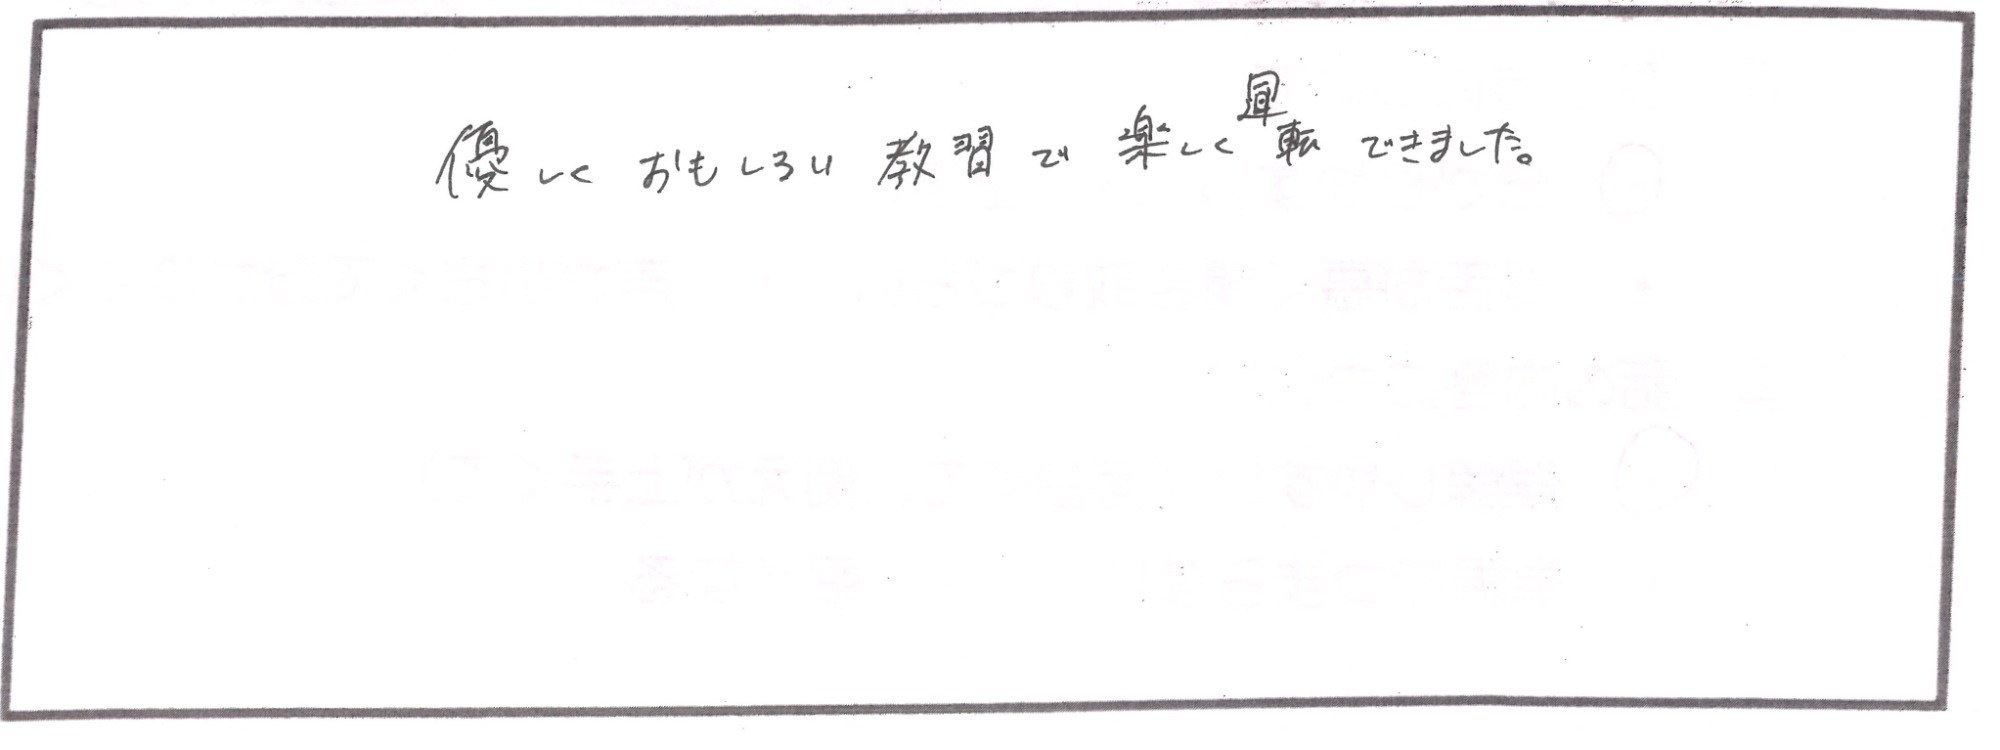 優しくおもしろい教習で楽しく運転できました。